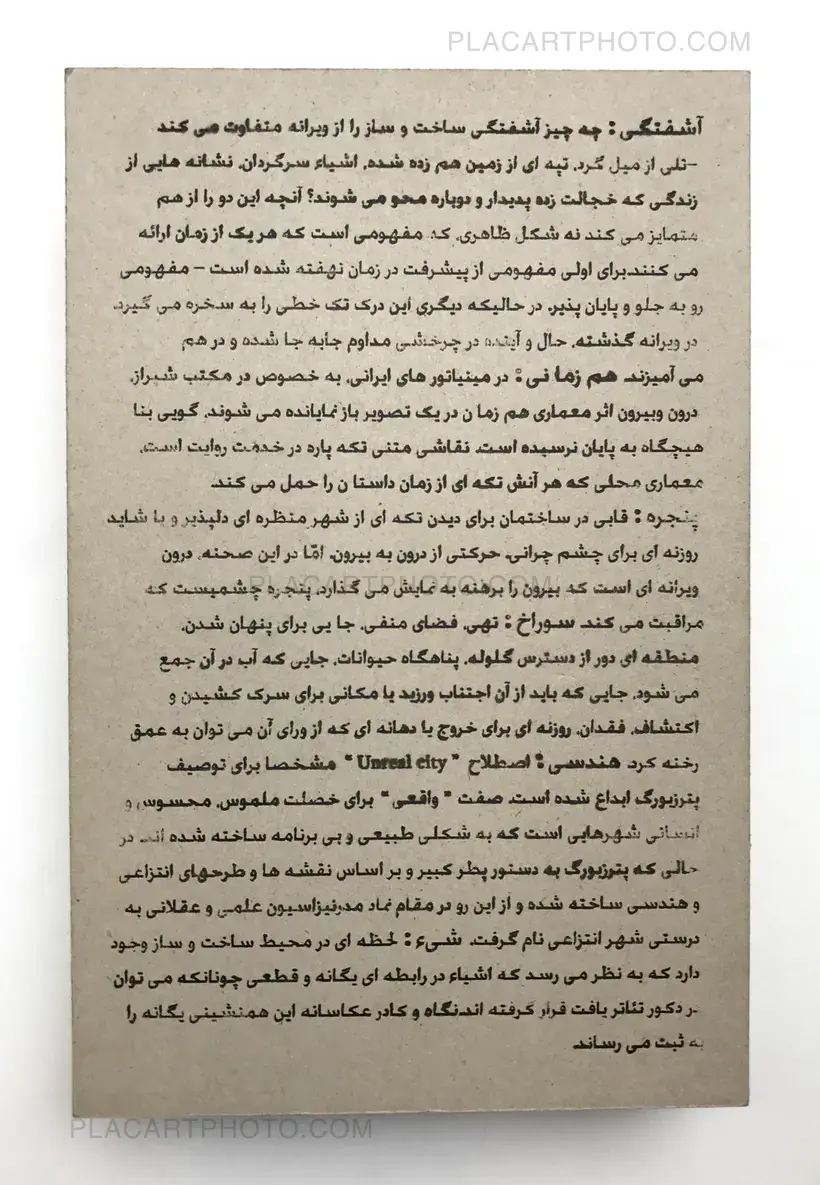 PLACARTPHOTO.COM
آشفتگی : چه چیز آشفتگی ساخت و ساز را از ویرانه متفاوت می کند
-تلی از میل گرد، تپه ای از زمین هم زده شده، اشیاء سرگردان، نشانه هایی از
زندگی که خجالت زده پدیدار و دوباره محو می شوند؟ آنچه این دو را از هم
متمایز می کند نه شکل ظاهری، که مفهومی است که هر یک از زمان ارائه
می کنند.برای اولی مفهومی از پیشرفت در زمان نهفته شده است - مفهومی
رو به جلو و پایان پذیر. در حالیکه دیگری این درک تک خطی را به سخره می گیرد.
در ویرانه گذشته، حال و آینده در چرخشی مداوم جابه جا شده و در هم
می آمیزند. هم زما نی : در مینیاتور های ایرانی، به خصوص در مکتب شیراز،
درون وبیرون اثر معماری هم زما ن در یک تصویر باز نمایانده می شوند، گویی بنا
هیچگاه به پایان نرسیده است. نقاشی متنی تکه پاره در خدمت روایت است.
معماری محلی که هر آنش تکه ای از زمان داستا ن را حمل می کند.
پنجره : قابی در ساختمان برای دیدن تکه ای از شهر منظره ای دلپذیر و یا شاید
روزنه ای برای چشم چرانی. حرکتی از درون به بیرون. امّا در این صحنه، درون
ویرانه ای است که بیرون را برهنه به نمایش می گذارد. پنجره چشمیست که
PLACARTPHOTO.COM
مراقبت می کند. سوراخ : تهی، فضای منفی، جا یی برای پنهان شدن.
منطقه ای دور از دسترس گلوله، پناهگاه حیوانات، جایی که آب در آن جمع
می شود، جایی که باید از آن اجتناب ورزید یا مکانی برای سرک کشیدن و
اکتشاف. فقدان، روزنه ای برای خروج یا دهانه ای که از ورای آن می توان به عمق
رخنه کرد. هندسی : اصطلاح " Unreal city " مشخصا برای توصیف
پترزبورگ ابداع شده است. صفت " واقعی " برای خصلت ملموس، محسوس و
انسانی شهرهایی است که به شکلی طبیعی و بی برنامه ساخته شده اند. در
حالی که پترزبورگ به دستور پطر کبیر و بر اساس نقشه ها و طرحهای انتزاعی
و هندسی ساخته شده و از این رو در مقام نماد مدرنیزاسیون علمی و عقلانی به
درستی شهر انتزاعی نام گرفت. شیء : لحظه ای در محیط ساخت و ساز وجود
دارد که به نظر می رسد که اشیاء در رابطه ای یگانه و قطعی چونانکه می توان
در دکور تئاتر یافت قرار گرفته اند.نگاه و کادر عکاسانه این همنشینی یگانه را
به ثبت می رساند.
PLACARTPHOTO.COM